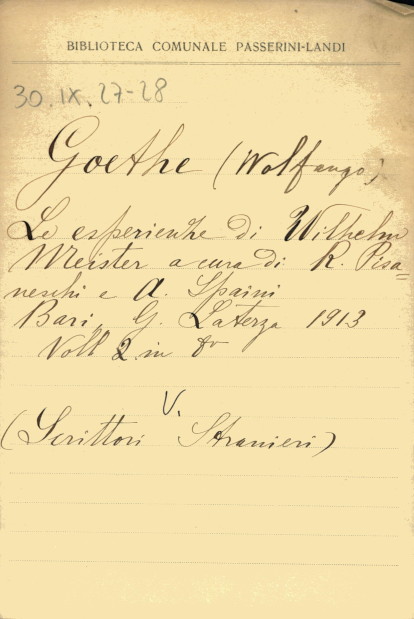 BIBLIOTECA COMUNALE PASSERINI-LANDI
30.IX.27-28
Goethe (Wolfango)
Le esperienze di Wilhelm
Meister a cura di R. Pisa=
neschi e A. Spaini
Bari, G. Laterza 1913
Voll 2 in 8º
V.
(Scrittori Stranieri)